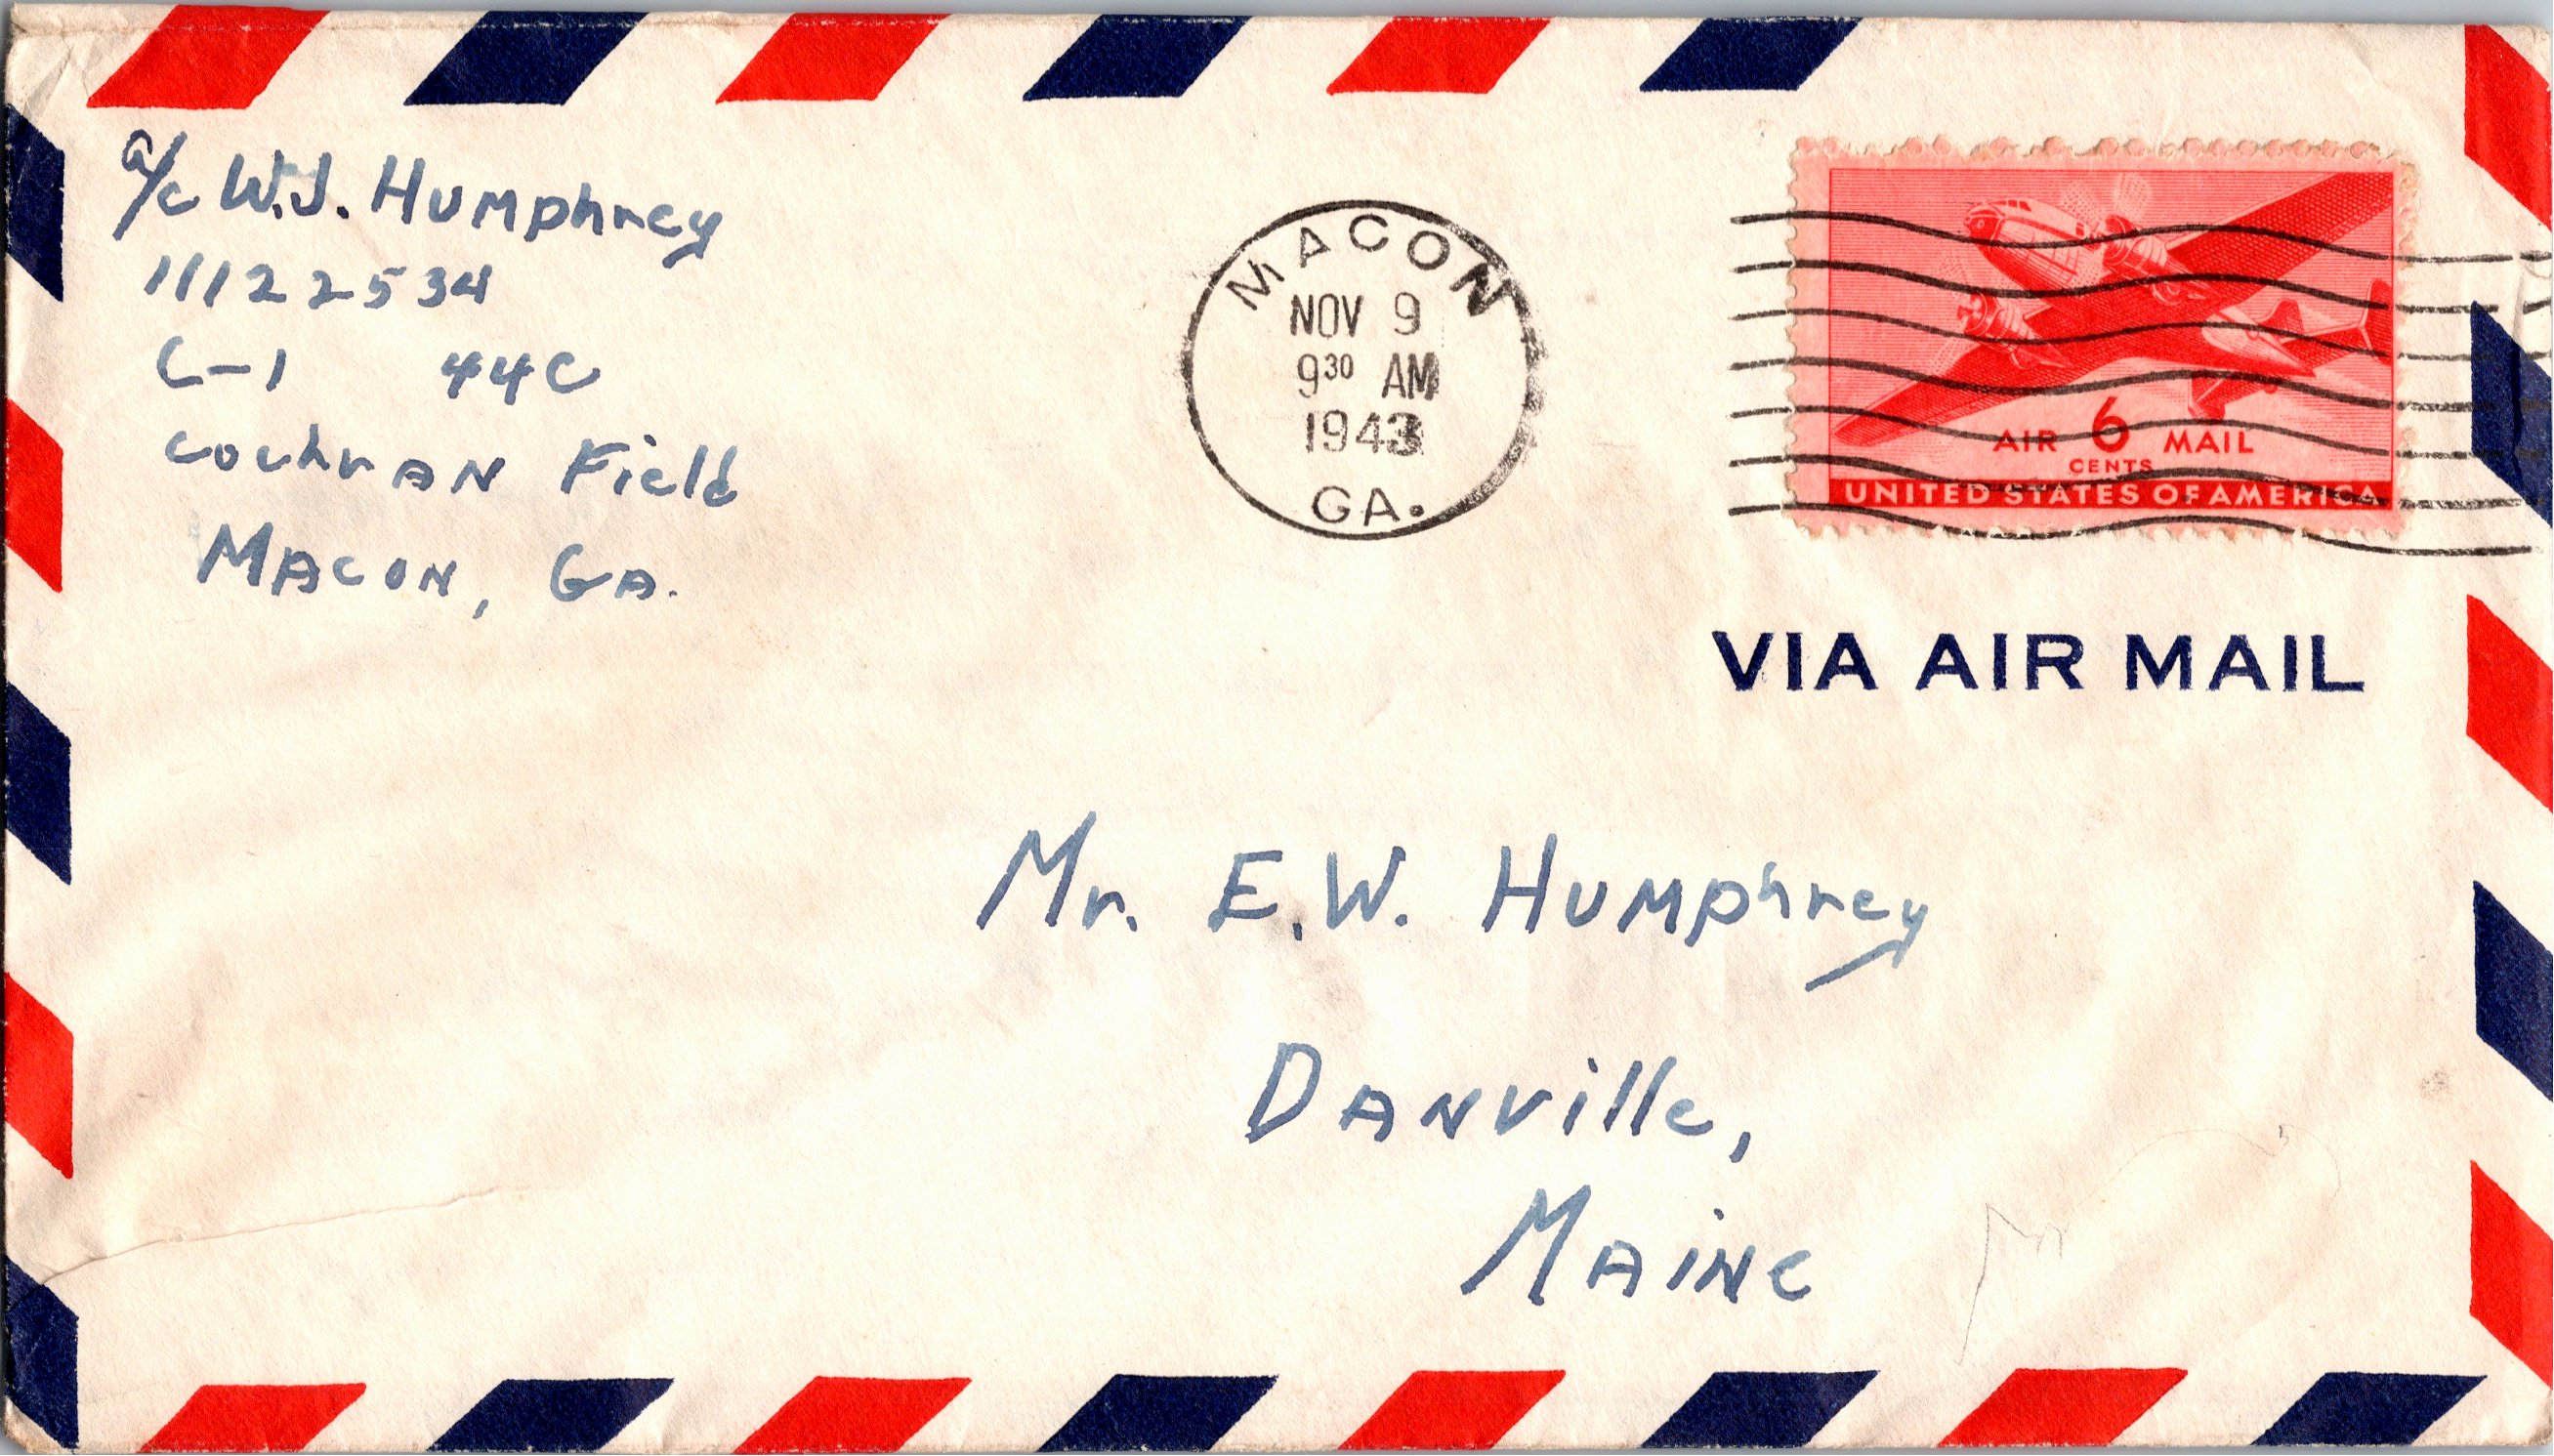 a/c W.J. Humphrey
11122534
C-1 44C
Cochran Field
Macon, Ga.
MACON
NOV 9
9 30 AM
1943
GA.
AIR 6 MAIL
CENTS
UNITED STATES OF AMERICA
VIA AIR MAIL
Mr. E.W. Humphrey
Danville,
Maine